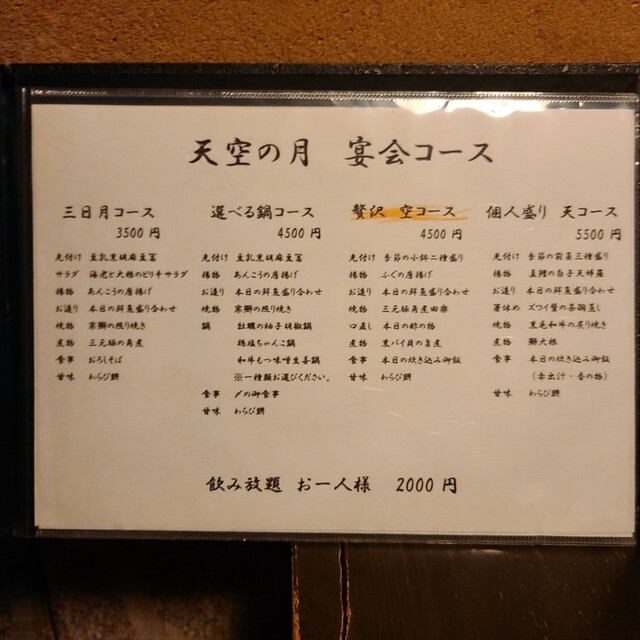 天空の月 宴会コース
三日月コース
3500 円
先付け 豆乳黒胡麻豆富
サラダ 海老と大根のピリ辛サラダ
揚物 あんこうの唐揚げ
お造り 本日の鮮魚盛り合わせ
焼物 寒鰤の照り焼き
煮物 三元豚の角煮
食事 おろしそば
甘味 わらび餅
選べる鍋コース
4500 円
先付け 豆乳黒胡麻豆富
揚物 あんこうの唐揚げ
お造り 本日の鮮魚盛り合わせ
焼物 寒鰤の照り焼き
鍋 牡蠣の柚子胡椒鍋
鶏塩ちゃんこ鍋
和牛もつ味噌生姜鍋
※一種類お選びください。
食事 〆の御食事
甘味 わらび餅
贅沢 空コース
4500 円
先付け 季節の小鉢二種盛り
揚物 ふぐの唐揚げ
お造り 本日の鮮魚盛り合わせ
焼物 三元豚角煮田楽
口直し 本日の酢の物
煮物 黒バイ貝の旨煮
食事 本日の炊き込み御飯
甘味 わらび餅
個人盛り 天コース
5500 円
先付け 季節の前菜三種盛り
揚物 真鱈の白子天婦羅
お造り 本日の鮮魚盛り合わせ
箸休め ズワイ蟹の茶碗蒸し
焼物 黒毛和牛の炙り焼き
煮物 鰤大根
食事 本日の炊き込み御飯
（赤出汁・香の物）
甘味 わらび餅
飲み放題 お一人様 2000 円